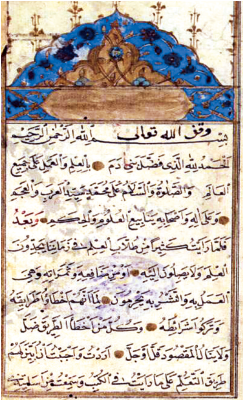 وقف الله تعالى
بسم لله الرحمن الرحيم
الحمد لله الذي فضل بني دم بالعلم والعمل على جميع
العالم والصلوة والسلام على محمد سيد العرب والعجم
وعلى اله واصحابه ينابيع العلوم والحكم وبعد
فلما رايت كثيرا من طلاب العلم في زماننا يجدون
العلم ولا يصلون اليه او من منافعه وثمراته وهي
العمل به والنشر به يحرمون لما انهم اخطأوا طرايقه
وتركوا شرايطه وكل من اخطأ الطريق ضل
ولا ينال المقصود قل او جل اردت واحببت ان ابين لهم
طريق التعلم على ما رايت في الكتب وسمعت من